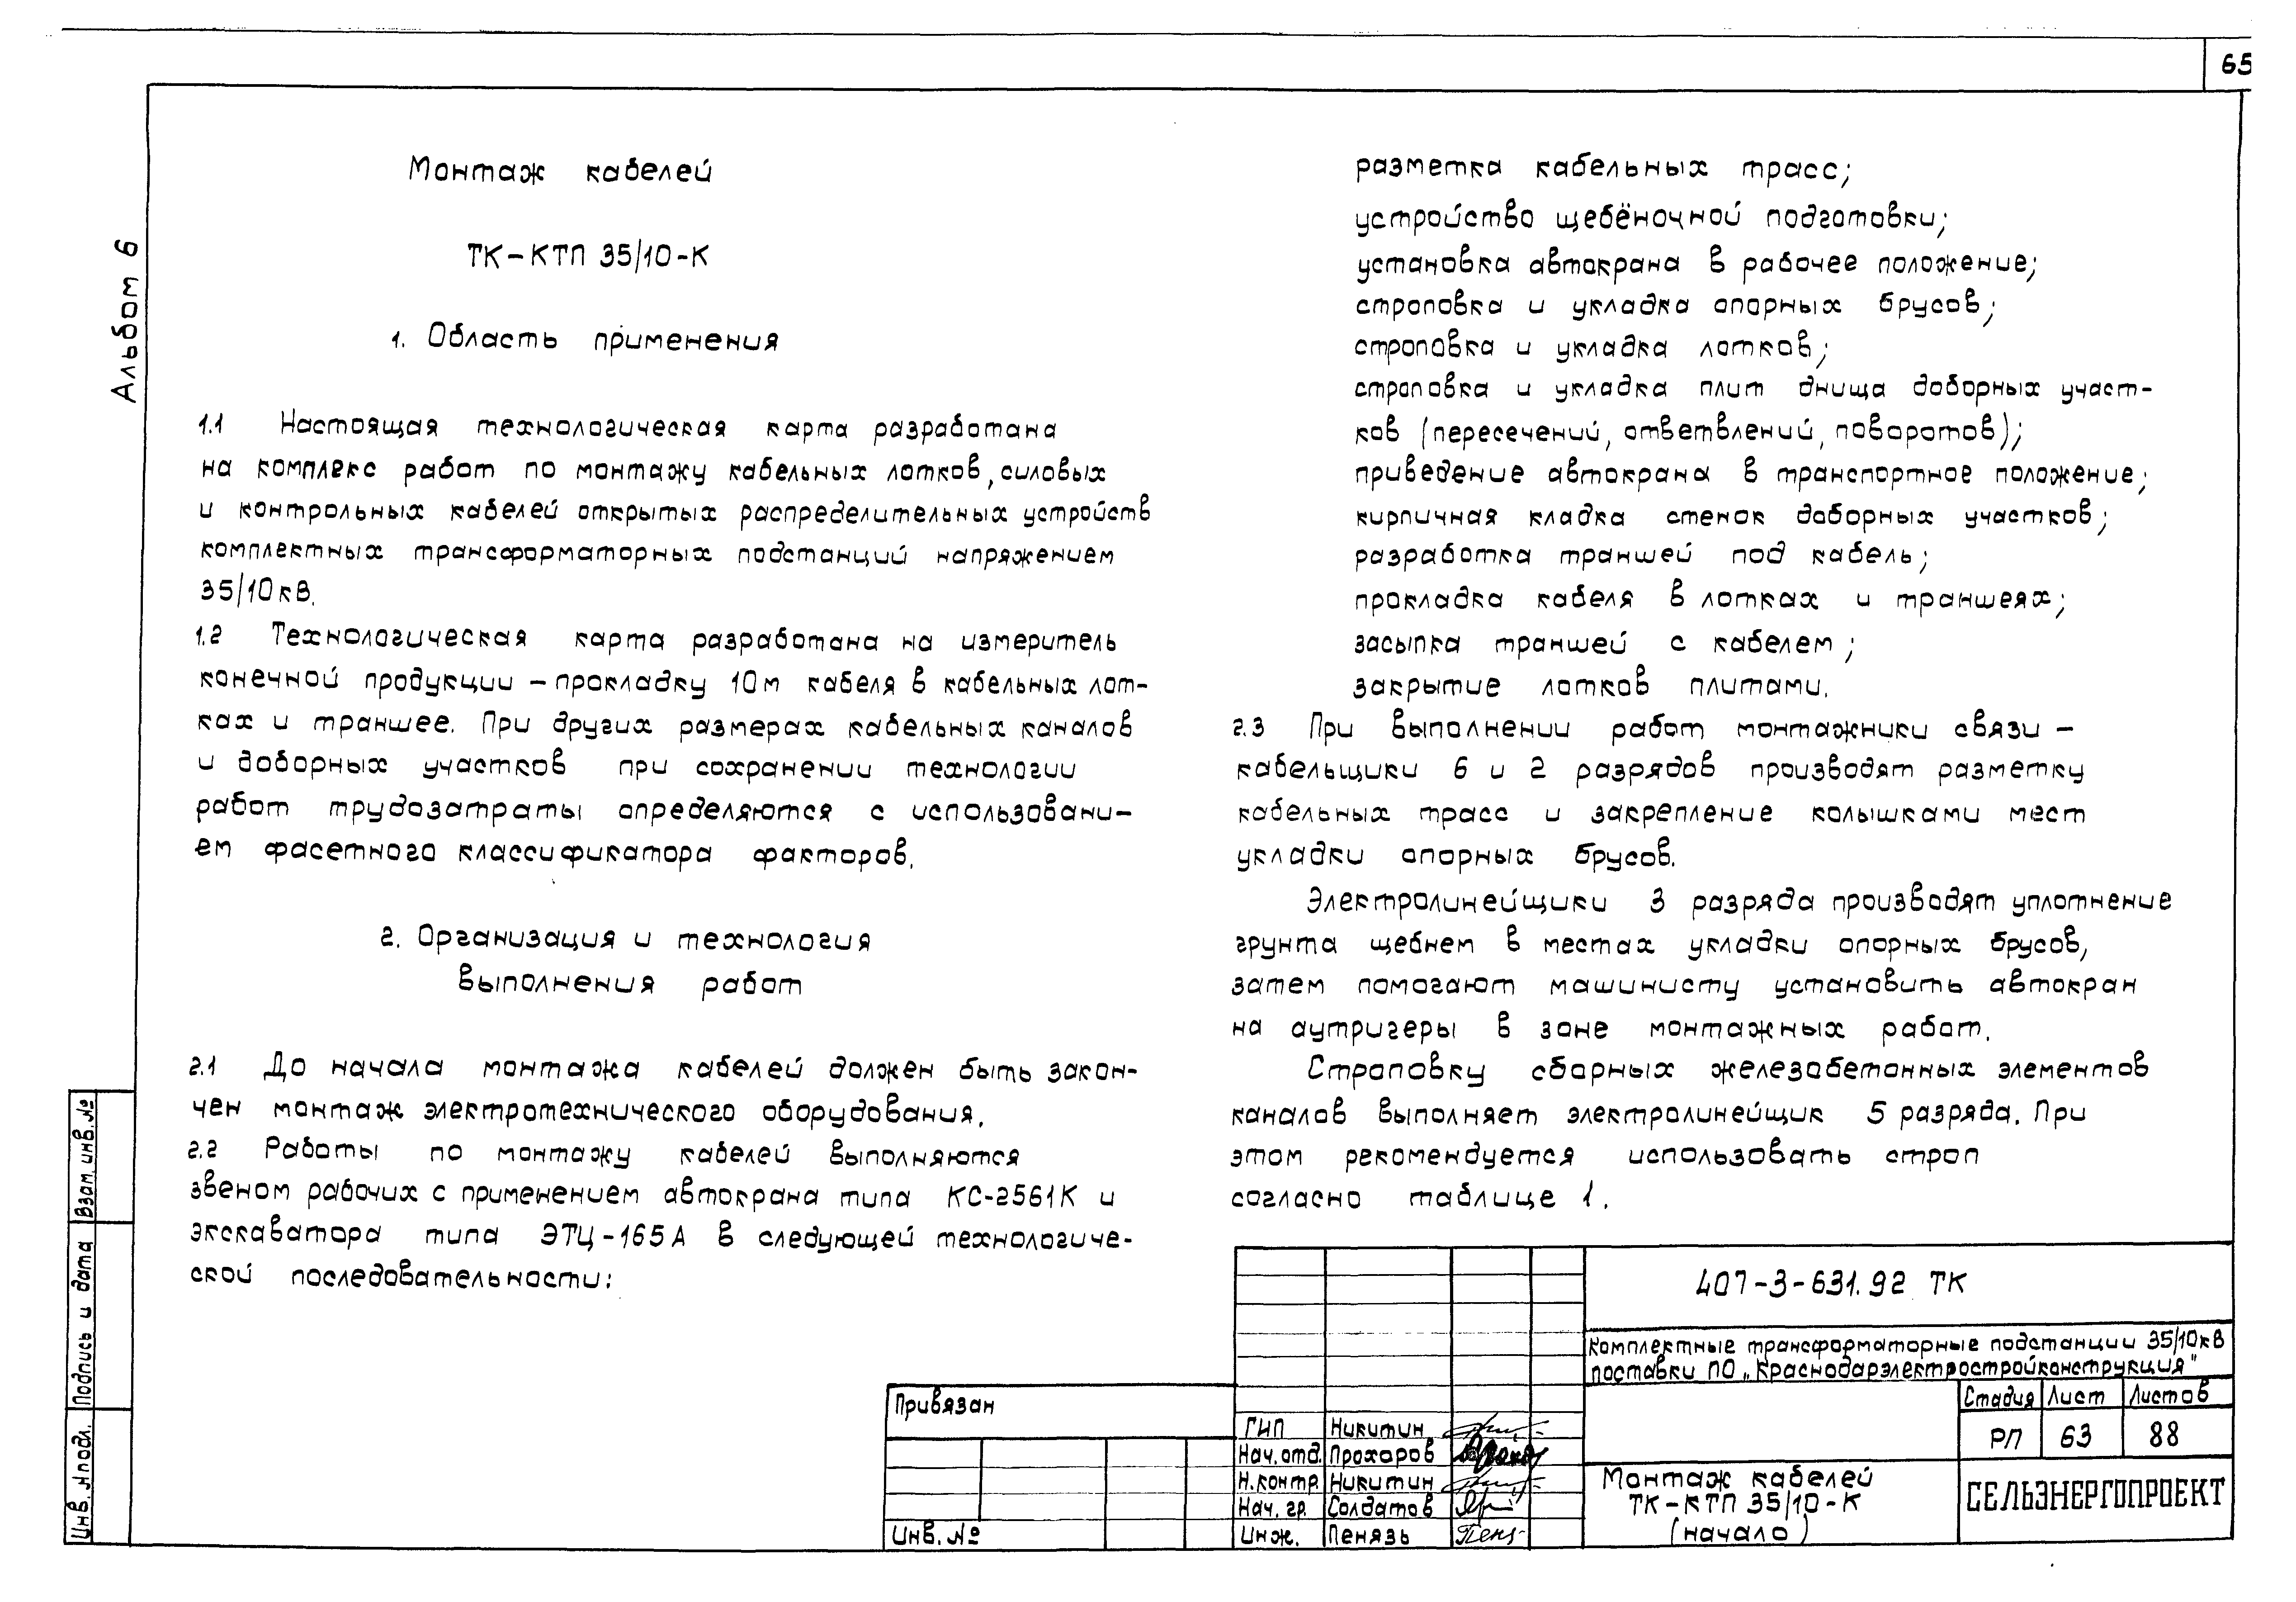 65
Альбом 6
Монтаж кабелей
ТК-КТП 35/10-К
1. Область применения
1.1 Настоящая технологическая карта разработана
на комплекс работ по монтажу кабельных лотков, силовых
и контрольных кабелей открытых распределительных устройств
комплектных трансформаторных подстанций напряжением
35/10кВ.
1.2 Технологическая карта разработана на измеритель
конечной продукции – прокладку 10м кабеля в кабельных лот-
ках и траншее. При других размерах кабельных каналов
и доборных участков при сохранении технологии
работ трудозатраты определяются с использовани-
ем фасетного классификатора факторов.
2. Организация и технология
выполнения работ
2.1 До начала монтажа кабелей должен быть закон-
чен монтаж электротехнического оборудования.
2.2 Работы по монтажу кабелей выполняются
звеном рабочих с применением автокрана типа КС-2561К и
экскаватора типа ЭТЦ-165А в следующей технологиче-
ской последовательности:
разметка кабельных трасс;
устройство щебёночной подготовки;
установка автокрана в рабочее положение;
строповка и укладка опорных брусов;
строповка и укладка лотков;
строповка и укладка плит днища доборных участ-
ков (пересечений, ответвлений, поворотов);
приведение автокрана в транспортное положение;
кирпичная кладка стенок доборных участков;
разработка траншей под кабель;
прокладка кабеля в лотках и траншеях;
засыпка траншей с кабелем;
закрытие лотков плитами.
2.3 При выполнении работ монтажники связи –
кабельщики 6 и 2 разрядов производят разметку
кабельных трасс и закрепление колышками мест
укладки опорных брусов.
Электролинейщики 3 разряда производят уплотнение
грунта щебнем в местах укладки опорных брусов,
затем помогают машинисту установить автокран
на аутригеры в зоне монтажных работ.
Строповку сборных железобетонных элементов
каналов выполняет электролинейщик 5 разряда. При
этом рекомендуется использовать строп
согласно таблице 1.
407-3-631.92 ТК
Комплектные трансформаторные подстанции 35/10кВ
поставки ПО „Краснодарэлектростройконструкция"
Стадия Лист Листов
РП 63 88
Монтаж кабелей
ТК-КТП 35/10-К
(начало)
СЕЛЬЭНЕРГОПРОЕКТ
Привязан
Инв. №
ГИП Никитин
Нач. отд. Прохоров
Н.контр. Никитин
Нач. гр. Солдатов
Инж. Пенязь
Взам. инв. №
Подпись и дата
Инв. № подл.